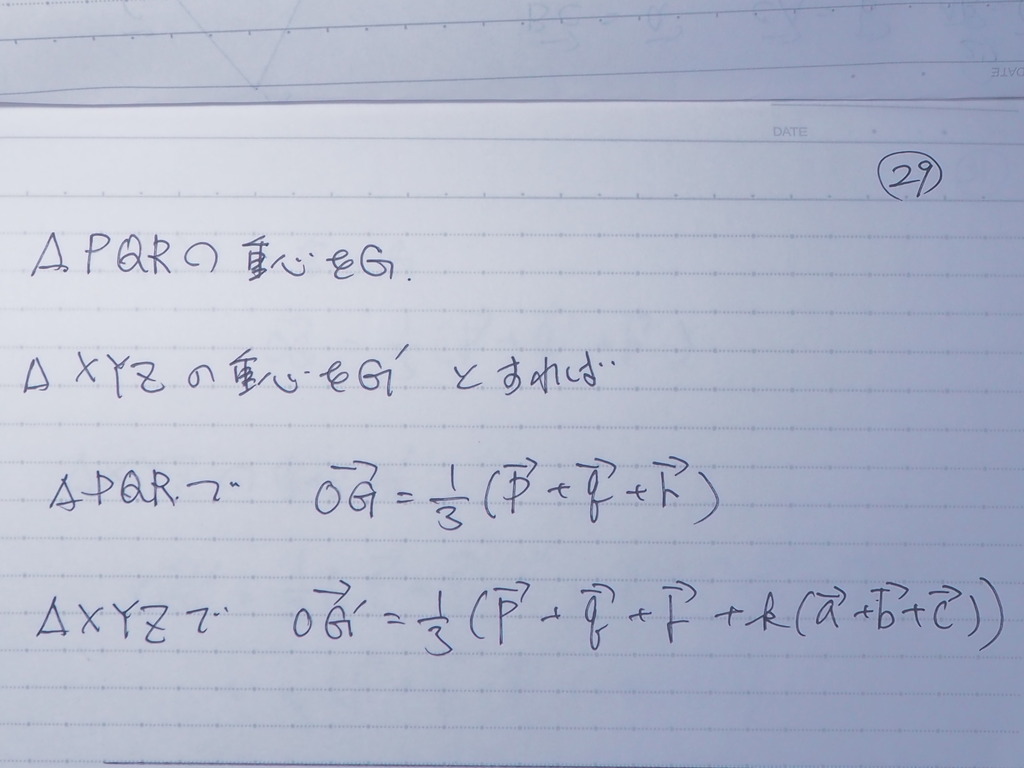 DATE
29
△PQRの重心をG.
△XYZの重心をG′とすれば
△PQRで OG→ = 1/3 (p→ + q→ + r→)
△XYZで OG′→ = 1/3 (p→ + q→ + r→ + k(a→ + b→ + c→))